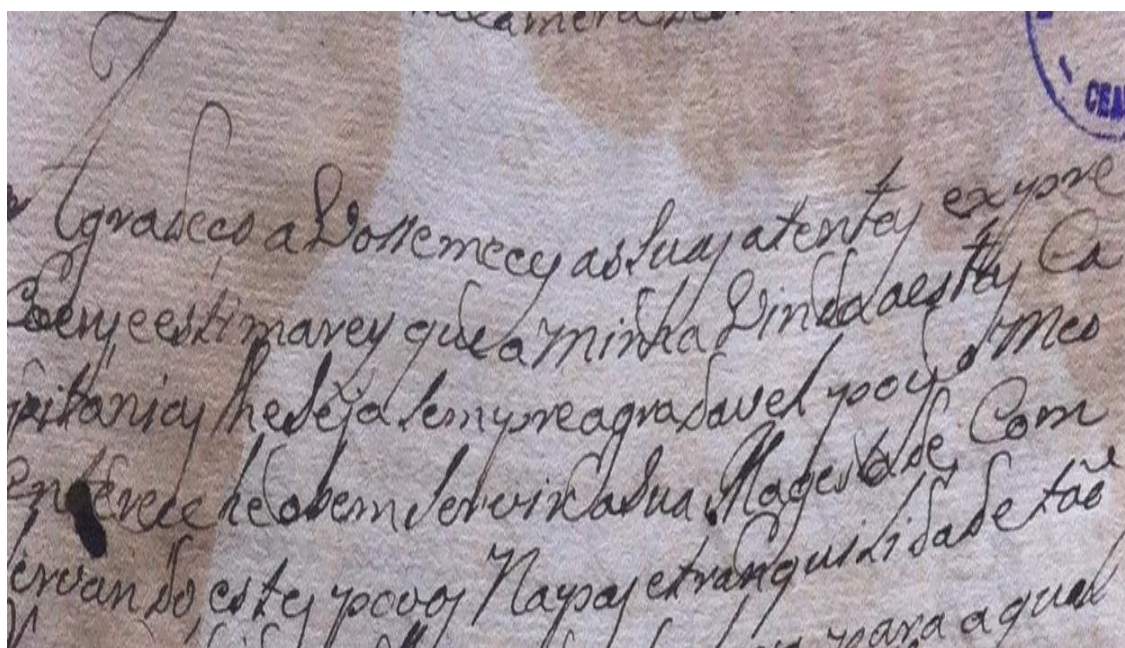 Agradeço a Vossemeces as suas atentas expre
çoens e estimarey que a minha Vinda a estas Ca
pitanias lhe seja sempre agradavel poys o meo
enterece he o bem servir a Sua Magestade Com
servando estes povos Na pas e tranquilidade tão
para a qual
CEA